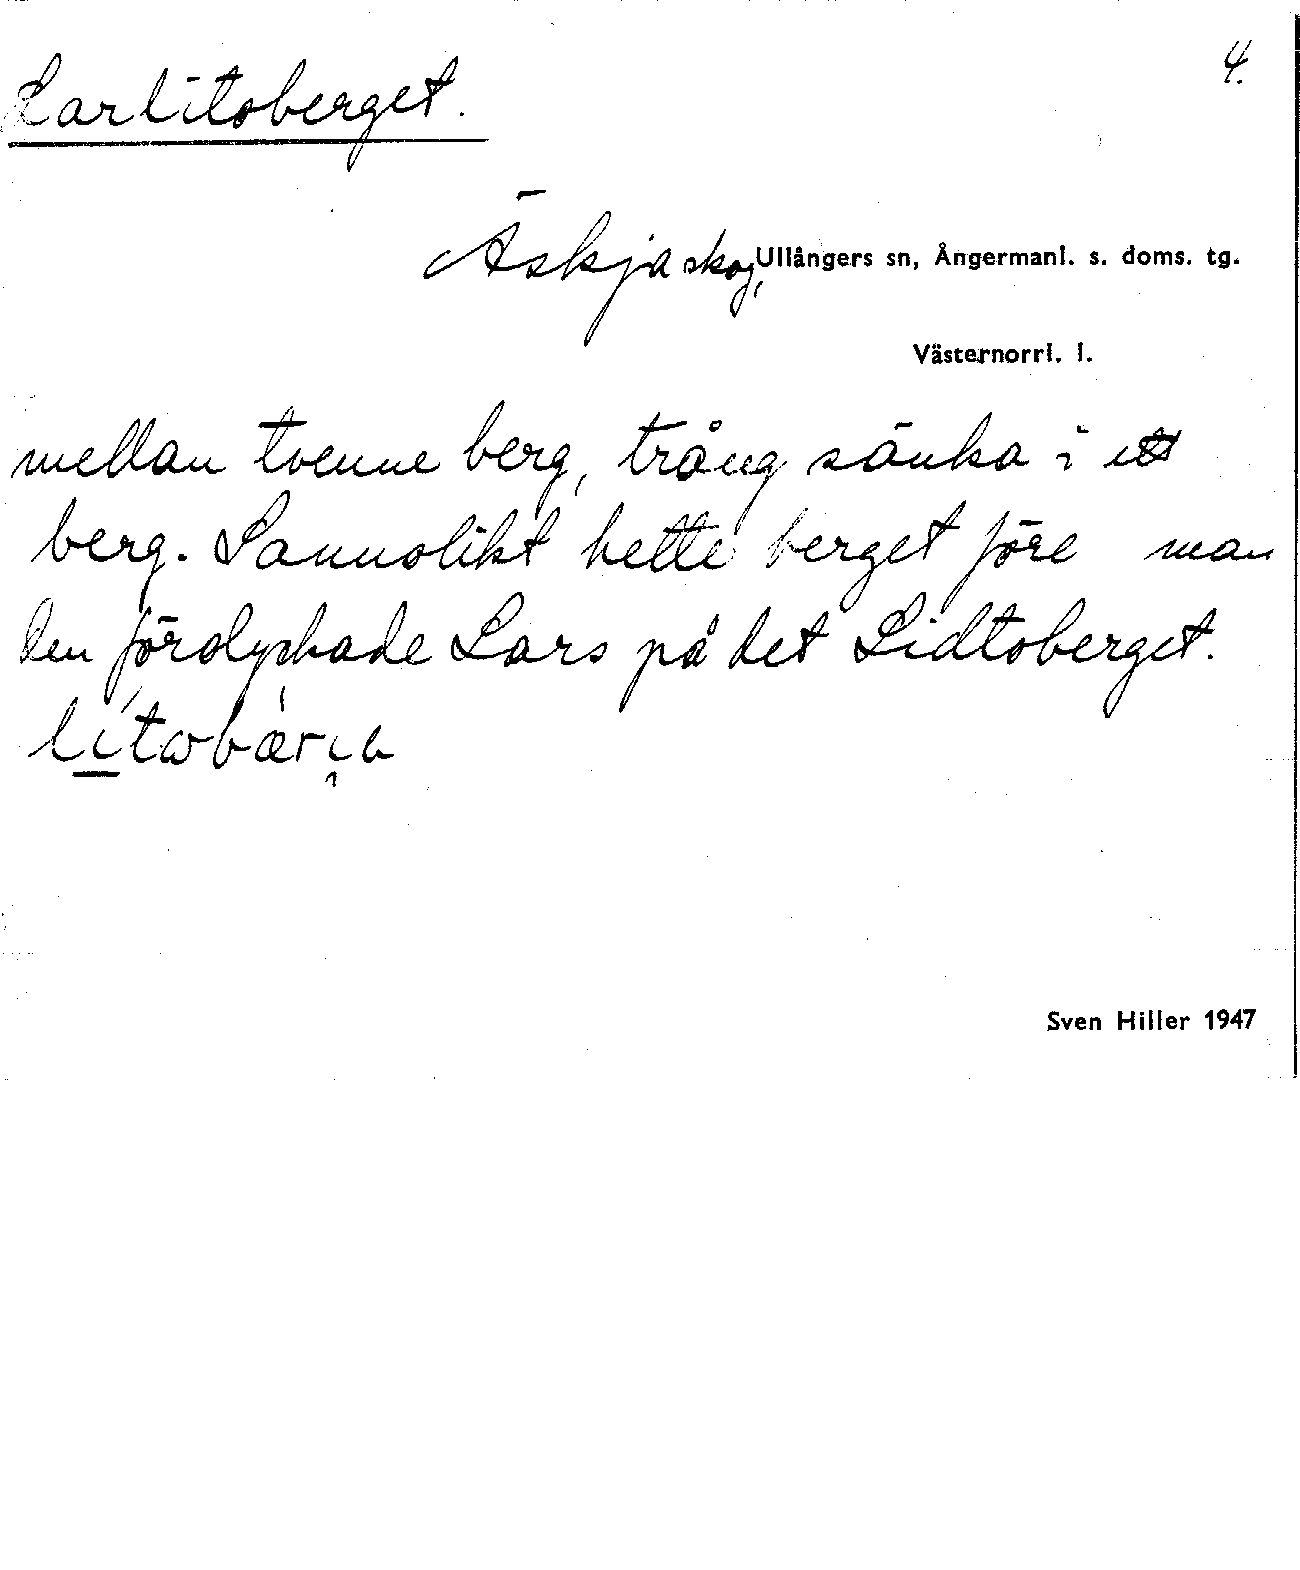 Larlitoberget.
4.
Äskja skog, Ullångers sn, Ångermanl. s. doms. tg.
Västernorrl. l.
mellan tvenne berg, trång sänka i ett
berg. Sannolikt hette berget före man
den förolyckade Lars på det Lidtoberget.
Sven Hiller 1947